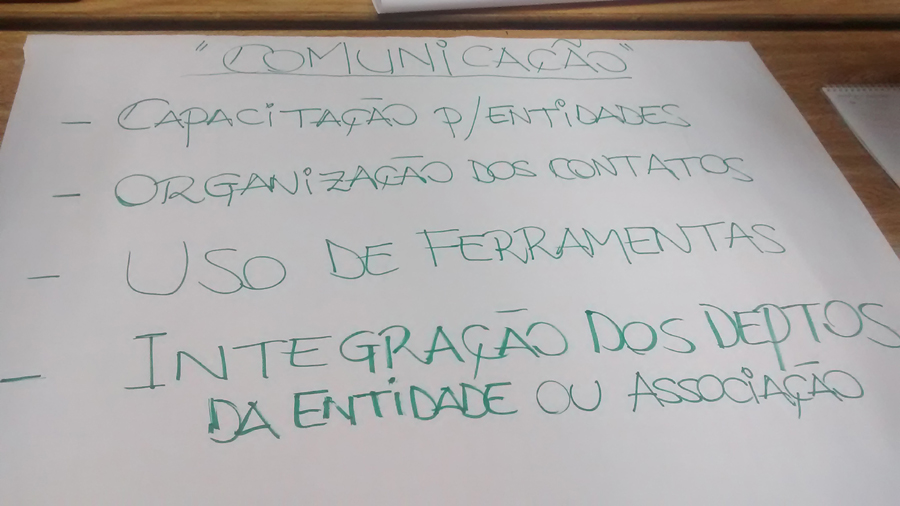 "COMUNICAÇÃO"
- CAPACITAÇÃO P/ENTIDADES
- ORGANIZAÇÃO DOS CONTATOS
- USO DE FERRAMENTAS
- INTEGRAÇÃO DOS DEPTOS
DA ENTIDADE OU ASSOCIAÇÃO